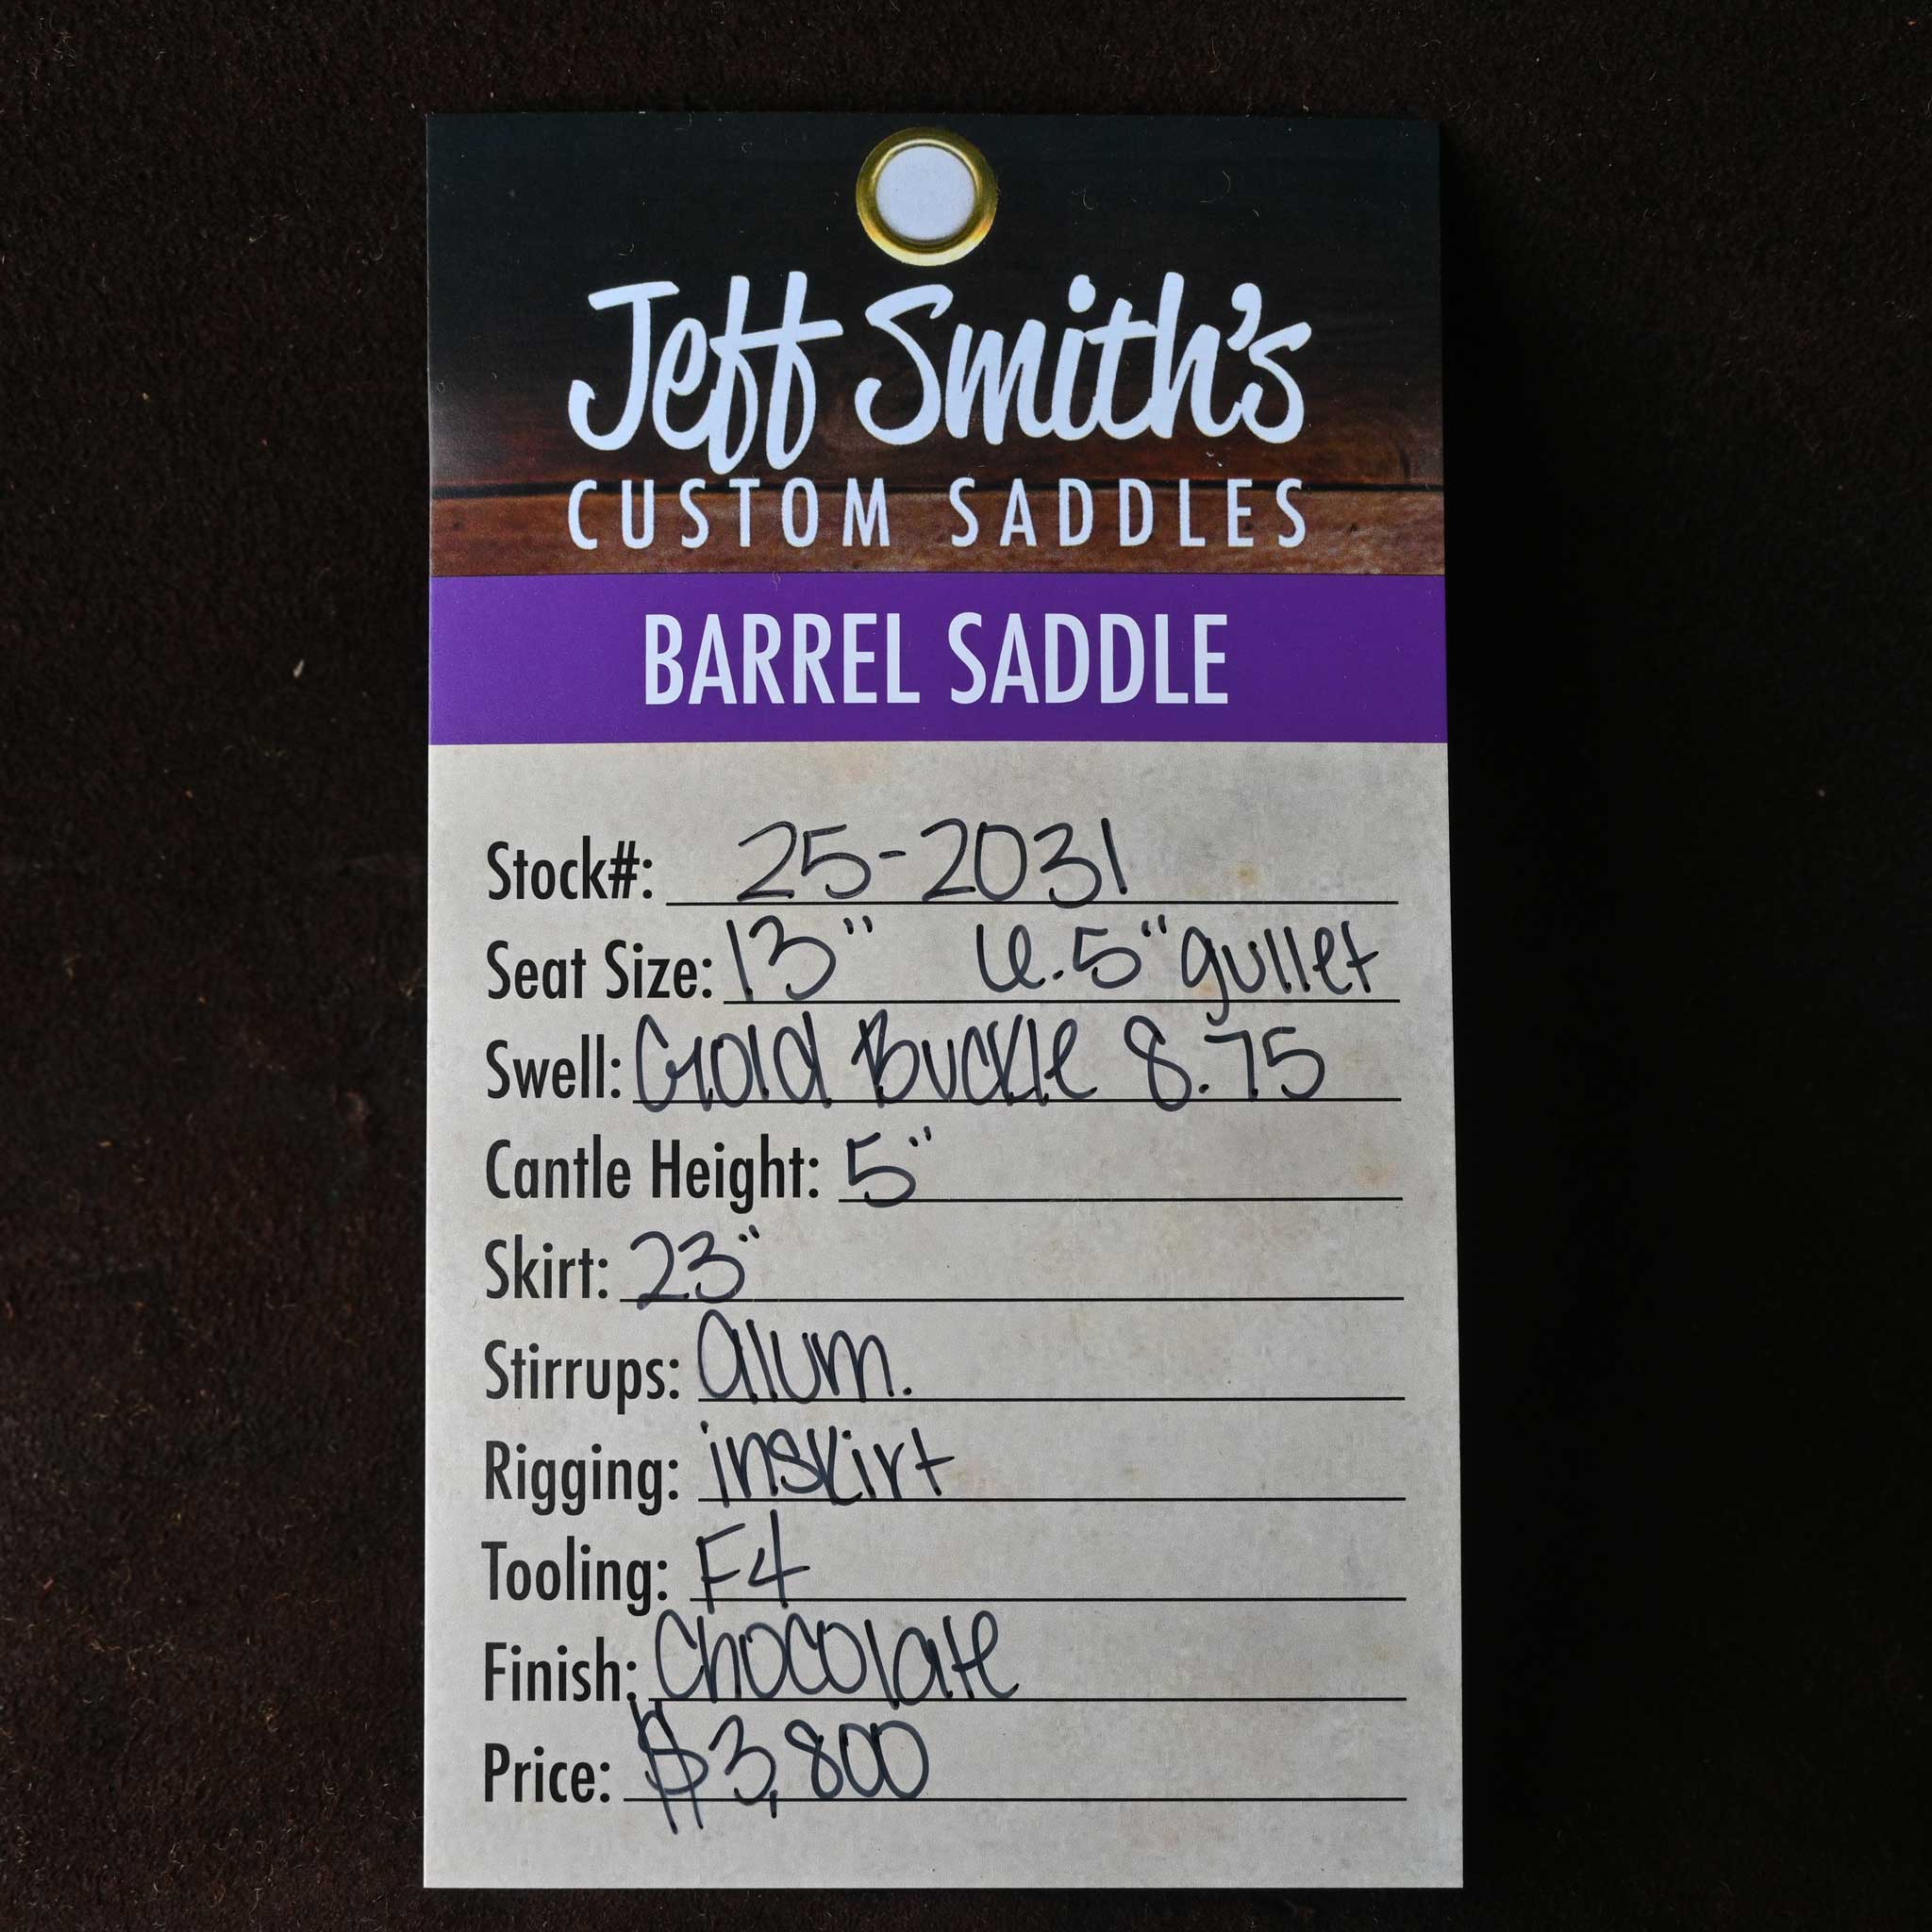 Jeff Smith's
CUSTOM SADDLES
BARREL SADDLE
Stock#: 25-2031
Seat Size: 13" 6.5" gullet
Swell: Gold Buckle 8.75
Cantle Height: 5"
Skirt: 23"
Stirrups: alum.
Rigging: inskirt
Tooling: F4
Finish: Chocolate
Price: $3,800